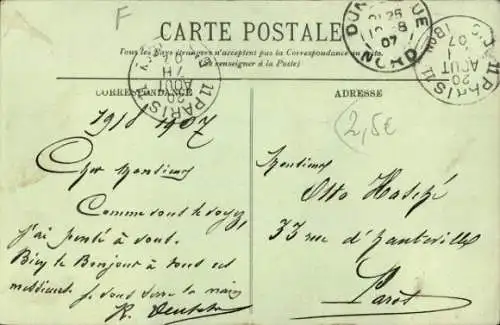 F
CARTE POSTALE
Tous les Pays étrangers n'acceptent pas la Correspondance au
(se renseigner à la Poste)
CORRESPONDANCE
ADRESSE
DUNKERQUE
NORD
07
PARIS 11
20
AOUT
07
PARIS 11
20
AOUT
07
2,5€
1918 1907
Cher Monsieur
Comme vous le voyez,
j'ai pensé à vous.
Bien le Bonjour à tous ces
messieurs. Je vous serre la main
Monsieur
Otto
33 rue d'Hauteville
Paris